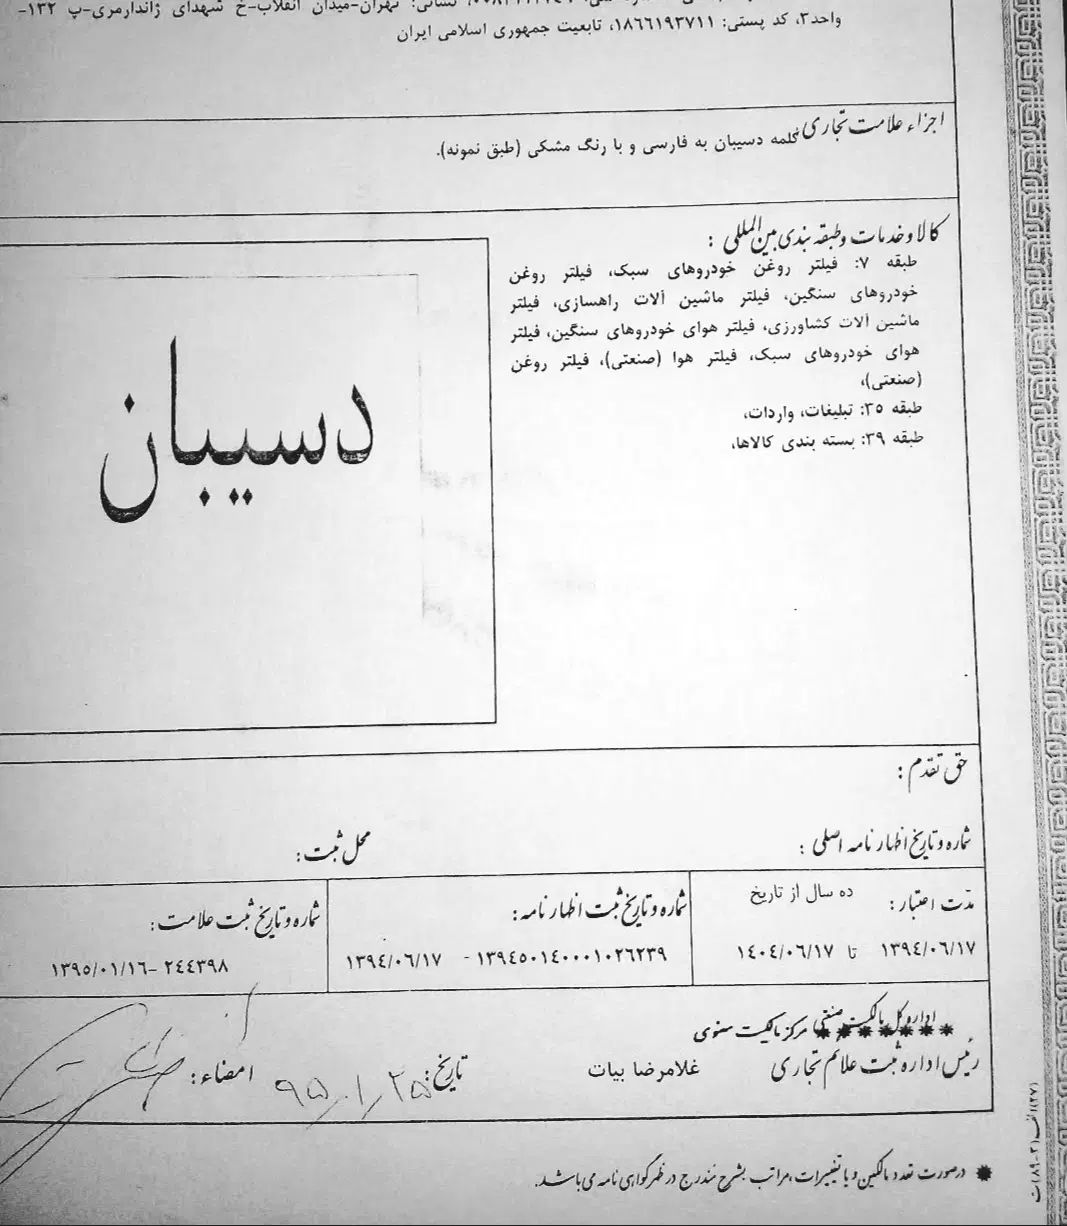 نشانی: تهران-میدان انقلاب-خ شهدای ژاندارمری-پ ۱۳۲-
واحد۳، کد پستی: ۱۸۶۶۱۹۳۷۱۱، تابعیت جمهوری اسلامی ایران
اجزاء علامت تجاری
کلمه دسیبان به فارسی و با رنگ مشکی (طبق نمونه).
کالا و خدمات و طبقه بندی بین المللی :
طبقه ۷: فیلتر روغن خودروهای سبک، فیلتر روغن
خودروهای سنگین، فیلتر ماشین آلات راهسازی، فیلتر
ماشین آلات کشاورزی، فیلتر هوای خودروهای سنگین، فیلتر
هوای خودروهای سبک، فیلتر هوا (صنعتی)، فیلتر روغن
(صنعتی)،
طبقه ۳۵: تبلیغات، واردات،
طبقه ۳۹: بسته بندی کالاها،
دسیبان
حق تقدم :
شماره و تاریخ اظهار نامه اصلی :
محل ثبت :
مدت اعتبار : ده سال از تاریخ
۱۳۹٤/۰۶/۱۷ تا ۱٤۰٤/۰۶/۱۷
شماره و تاریخ ثبت اظهار نامه :
۱۳۹٤۵۰۱٤۰۰۰۱۰۲۶۲۳۹ - ۱۳۹٤/۰۶/۱۷
شماره و تاریخ ثبت علامت :
۲٤٤۳۹۸ -۱۳۹۵/۰۱/۱۶
اداره کل مالکیت صنعتی مرکز مالکیت معنوی
رئیس اداره ثبت علائم تجاری غلامرضا بیات تاریخ: ۹۵/۰۱/۲۵ امضاء :
✸ درصورت تعدد مالکین و یا تغییرات، مراتب بشرح مندرج در ظهر گواهی نامه می باشد.